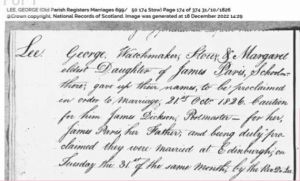 LEE, GEORGE (Old Parish Registers Marriages 699/ 50 174 Stow) Page 174 of 374 31/10/1826
©Crown copyright, National Records of Scotland. Image was generated at 18 December 2022 14:29
Lee. George, Watchmaker, Stow, & Margaret
eldest Daughter of James Paris, School-
there, gave up their names, to be proclaimed
in order to marriage, 21st Octr 1826. Caution
for him James Dickson, Postmaster – for her,
James Paris, her Father; and being duly pro-
claimed they were married at Edinburgh, on
Tuesday the 31st of the same month, by the Revd Dr Lee.